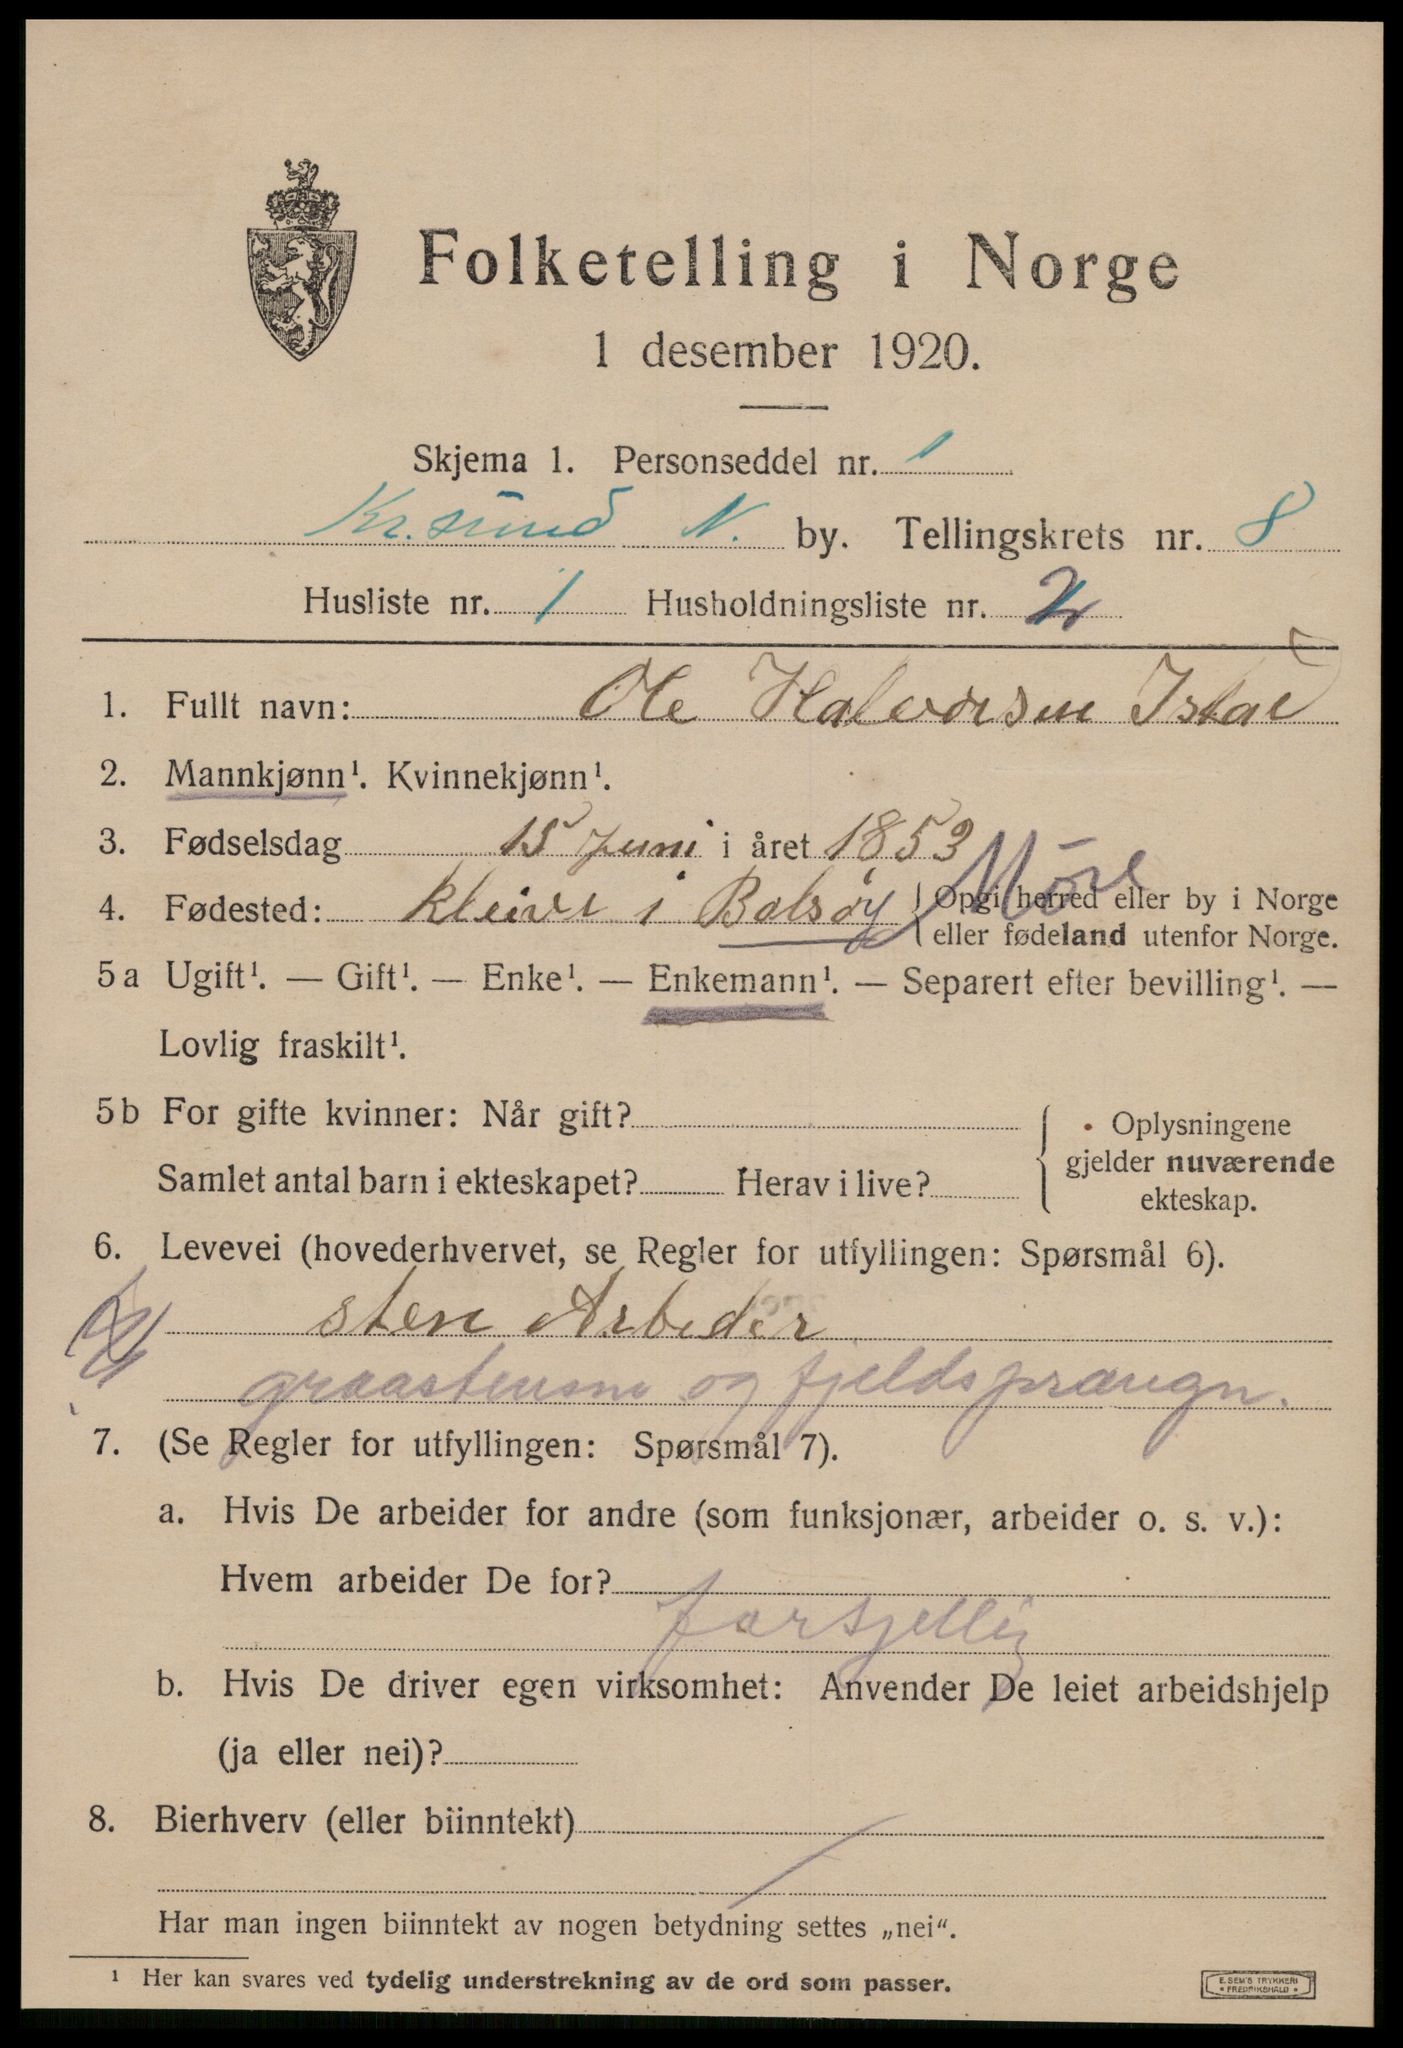 Folketelling i Norge
1 desember 1920.
Skjema 1. Personseddel nr. 1
Kr.sund N. by. Tellingskrets nr. 8
Husliste nr. 1 Husholdningsliste nr. 2
1. Fullt navn: Ole Halvorsen Istad
2. Mannkjønn¹. Kvinnekjønn¹.
3. Fødselsdag 15 Juni i året 1853
4. Fødested: kleive i Bolsøy Møre
Opgi herred eller by i Norge
eller fødeland utenfor Norge.
5a Ugift¹. — Gift¹. — Enke¹. — Enkemann¹. — Separert efter bevilling¹. —
Lovlig fraskilt¹.
5b For gifte kvinner: Når gift?
Samlet antal barn i ekteskapet? Herav i live?
Oplysningene
gjelder nuværende
ekteskap.
6. Levevei (hovederhvervet, se Regler for utfyllingen: Spørsmål 6).
sten Arbeder
graastensm og fjeldsprængn.
7. (Se Regler for utfyllingen: Spørsmål 7).
a. Hvis De arbeider for andre (som funksjonær, arbeider o. s. v.):
Hvem arbeider De for?
forsjellig
b. Hvis De driver egen virksomhet: Anvender De leiet arbeidshjelp
(ja eller nei)?
8. Bierhverv (eller biinntekt)
Har man ingen biinntekt av nogen betydning settes „nei“.
¹ Her kan svares ved tydelig understrekning av de ord som passer.
E. SEM'S TRYKKERI
• FREDRIKSHALD •